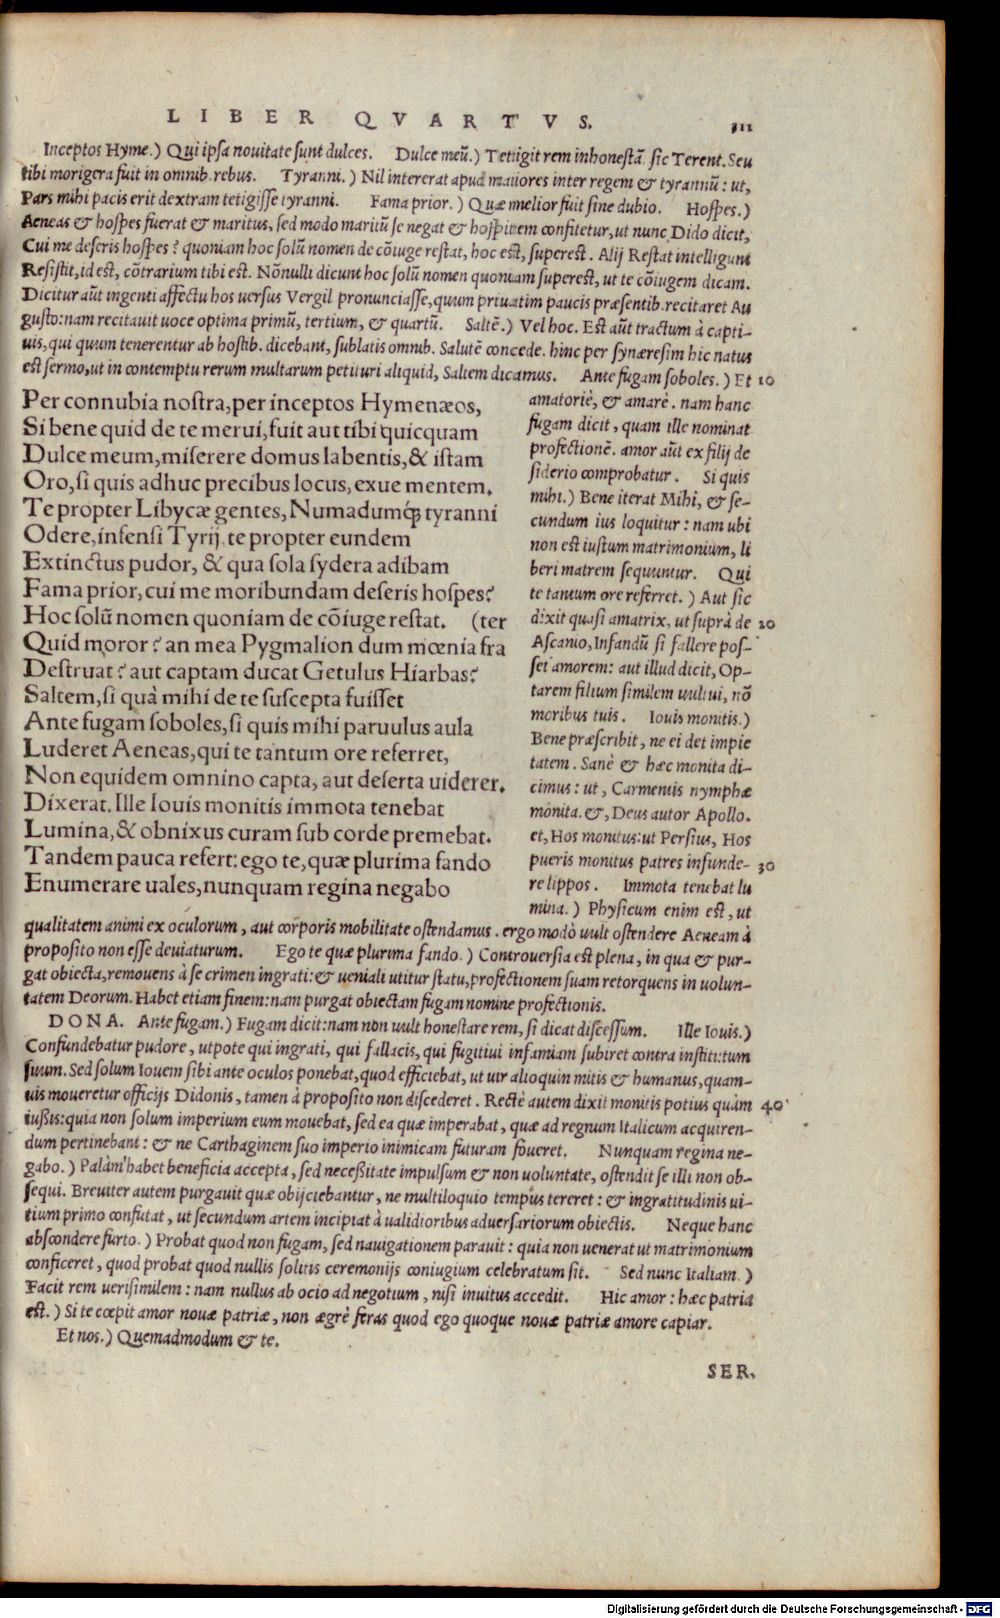 LIBER QVARTVS.
311
Inceptos Hyme.) Qui ipsa nouitate sunt dulces. Dulce meũ.) Tetigit rem inhonestã. sic Terent. Seu
tibi morigera fuit in omnib. rebus. Tyranni.) Nil intererat apud maiores inter regem & tyrannũ: ut,
Pars mihi pacis erit dextram tetigisse tyranni. Fama prior.) Quæ melior fuit sine dubio. Hospes.)
Aeneas & hospes fuerat & maritus, sed modo maritũ se negat & hospitem confitetur, ut nunc Dido dicit,
Cui me deseris hospes? quoniam hoc solũ nomen de cõiuge restat, hoc est, superest. Alij Restat intelligunt
Resistit, id est, cõtrarium tibi est. Nõnulli dicunt hoc solũ nomen quoniam superest, ut te cõiugem dicam.
Dicitur aũt ingenti affectu hos uersus Vergil pronunciasse, quum priuatim paucis præsentib. recitaret Au
gusto: nam recitauit uoce optima primũ, tertium, & quartũ. Saltẽ.) Vel hoc. Est aũt tractum à capti-
uis, qui quum tenerentur ab hostib. dicebant, sublatis omnib. Salutẽ concede. hinc per synæresim hic natus
est sermo, ut in contemptu rerum multarum petituri aliquid, Saltem dicamus. Ante fugam soboles.) Et 10
Per connubia nostra, per inceptos Hymenæos,
Si bene quid de te merui, fuit aut tibi quicquam
Dulce meum, miserere domus labentis, & istam
Oro, si quis adhuc precibus locus, exue mentem.
Te propter Libycæ gentes, Numadumq́; tyranni
Odere, infensi Tyrij, te propter eundem
Extinctus pudor, & qua sola sydera adibam
Fama prior, cui me moribundam deseris hospes?
Hoc solũ nomen quoniam de cõiuge restat. (ter
Quid moror? an mea Pygmalion dum mœnia fra
Destruat? aut captam ducat Getulus Hiarbas?
Saltem, si quà mihi de te suscepta fuisset
Ante fugam soboles, si quis mihi paruulus aula
Luderet Aeneas, qui te tantum ore referret,
Non equidem omnino capta, aut deserta uiderer.
Dixerat. Ille Iouis monitis immota tenebat
Lumina, & obnixus curam sub corde premebat.
Tandem pauca refert: ego te, quæ plurima fando
Enumerare uales, nunquam regina negabo
amatoriè, & amarè. nam hanc
fugam dicit, quam ille nominat
profectionẽ. amor aũt ex filij de
siderio comprobatur. Si quis
mihi.) Bene iterat Mihi, & se-
cundum ius loquitur: nam ubi
non est iustum matrimonium, li
beri matrem sequuntur. Qui
te tantum ore referret.) Aut sic
dixit quasi amatrix, ut suprà de 20
Ascanio, Infandũ si fallere pos-
set amorem: aut illud dicit, Op-
tarem filium similem uultui, nõ
moribus tuis. Iouis monitis.)
Bene præscribit, ne ei det impie
tatem. Sanè & hæc monita di-
cimus: ut, Carmentis nymphæ
monita. &, Deus autor Apollo.
et, Hos monitus: ut Persius, Hos
pueris monitus patres infunde- 30
re lippos. Immota tenebat lu
mina.) Physicum enim est, ut
qualitatem animi ex oculorum, aut corporis mobilitate ostendamus. ergo modò uult ostendere Aeneam à
proposito non esse deuiaturum. Ego te quæ plurima fando.) Controuersia est plena, in qua & pur-
gat obiecta, remouens à se crimen ingrati: & ueniali utitur statu, profectionem suam retorquens in uolun-
tatem Deorum. Habet etiam finem: nam purgat obiectam fugam nomine profectionis.
DONA. Ante fugam.) Fugam dicit: nam non uult honestare rem, si dicat discessum. Ille Iouis.)
Confundebatur pudore, utpote qui ingrati, qui fallacis, qui fugitiui infamiam subiret contra institutum
suum. Sed solum Iouem sibi ante oculos ponebat, quod efficiebat, ut uir alioquin mitis & humanus, quam-
uis moueretur officijs Didonis, tamen à proposito non discederet. Rectè autem dixit monitis potius quàm 40
iussis: quia non solum imperium eum mouebat, sed ea quæ imperabat, quæ ad regnum Italicum acquiren-
dum pertinebant: & ne Carthaginem suo imperio inimicam futuram foueret. Nunquam regina ne-
gabo.) Palàm habet beneficia accepta, sed necessitate impulsum & non uoluntate, ostendit se illi non ob-
sequi. Breuiter autem purgauit quæ obijciebantur, ne multiloquio tempus tereret: & ingratitudinis ui-
tium primo confutat, ut secundum artem incipiat à ualidioribus aduersariorum obiectis. Neque hanc
abscondere furto.) Probat quod non fugam, sed nauigationem parauit: quia non uenerat ut matrimonium
conficeret, quod probat quod nullis solitis ceremonijs coniugium celebratum sit. Sed nunc Italiam.)
Facit rem uerisimilem: nam nullus ab ocio ad negotium, nisi inuitus accedit. Hic amor: hæc patria
est.) Si te cœpit amor nouæ patriæ, non ægrè feras quod ego quoque nouæ patriæ amore capiar.
Et nos.) Quemadmodum & te.
SER.
Digitalisierung gefördert durch die Deutsche Forschungsgemeinschaft - DFG